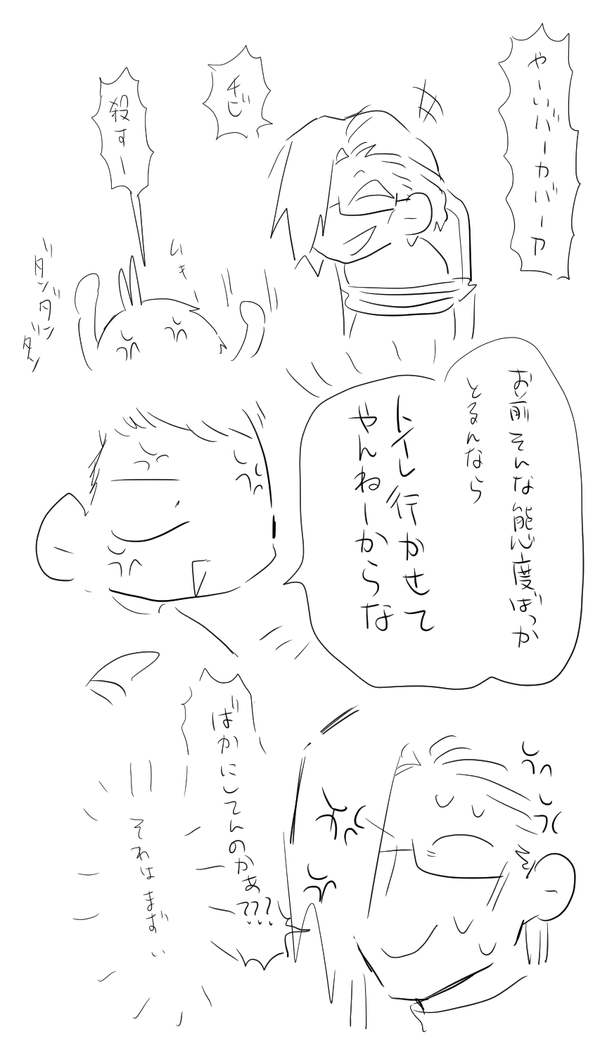 やーいバーカバーカ
チビ
殺すー
ムキー
ダンダン
ダン
お前そんな態度ばっか
とるんなら
トイレ行かせて
やんねーからな
ばかにしてんのかあ???
それはまずい